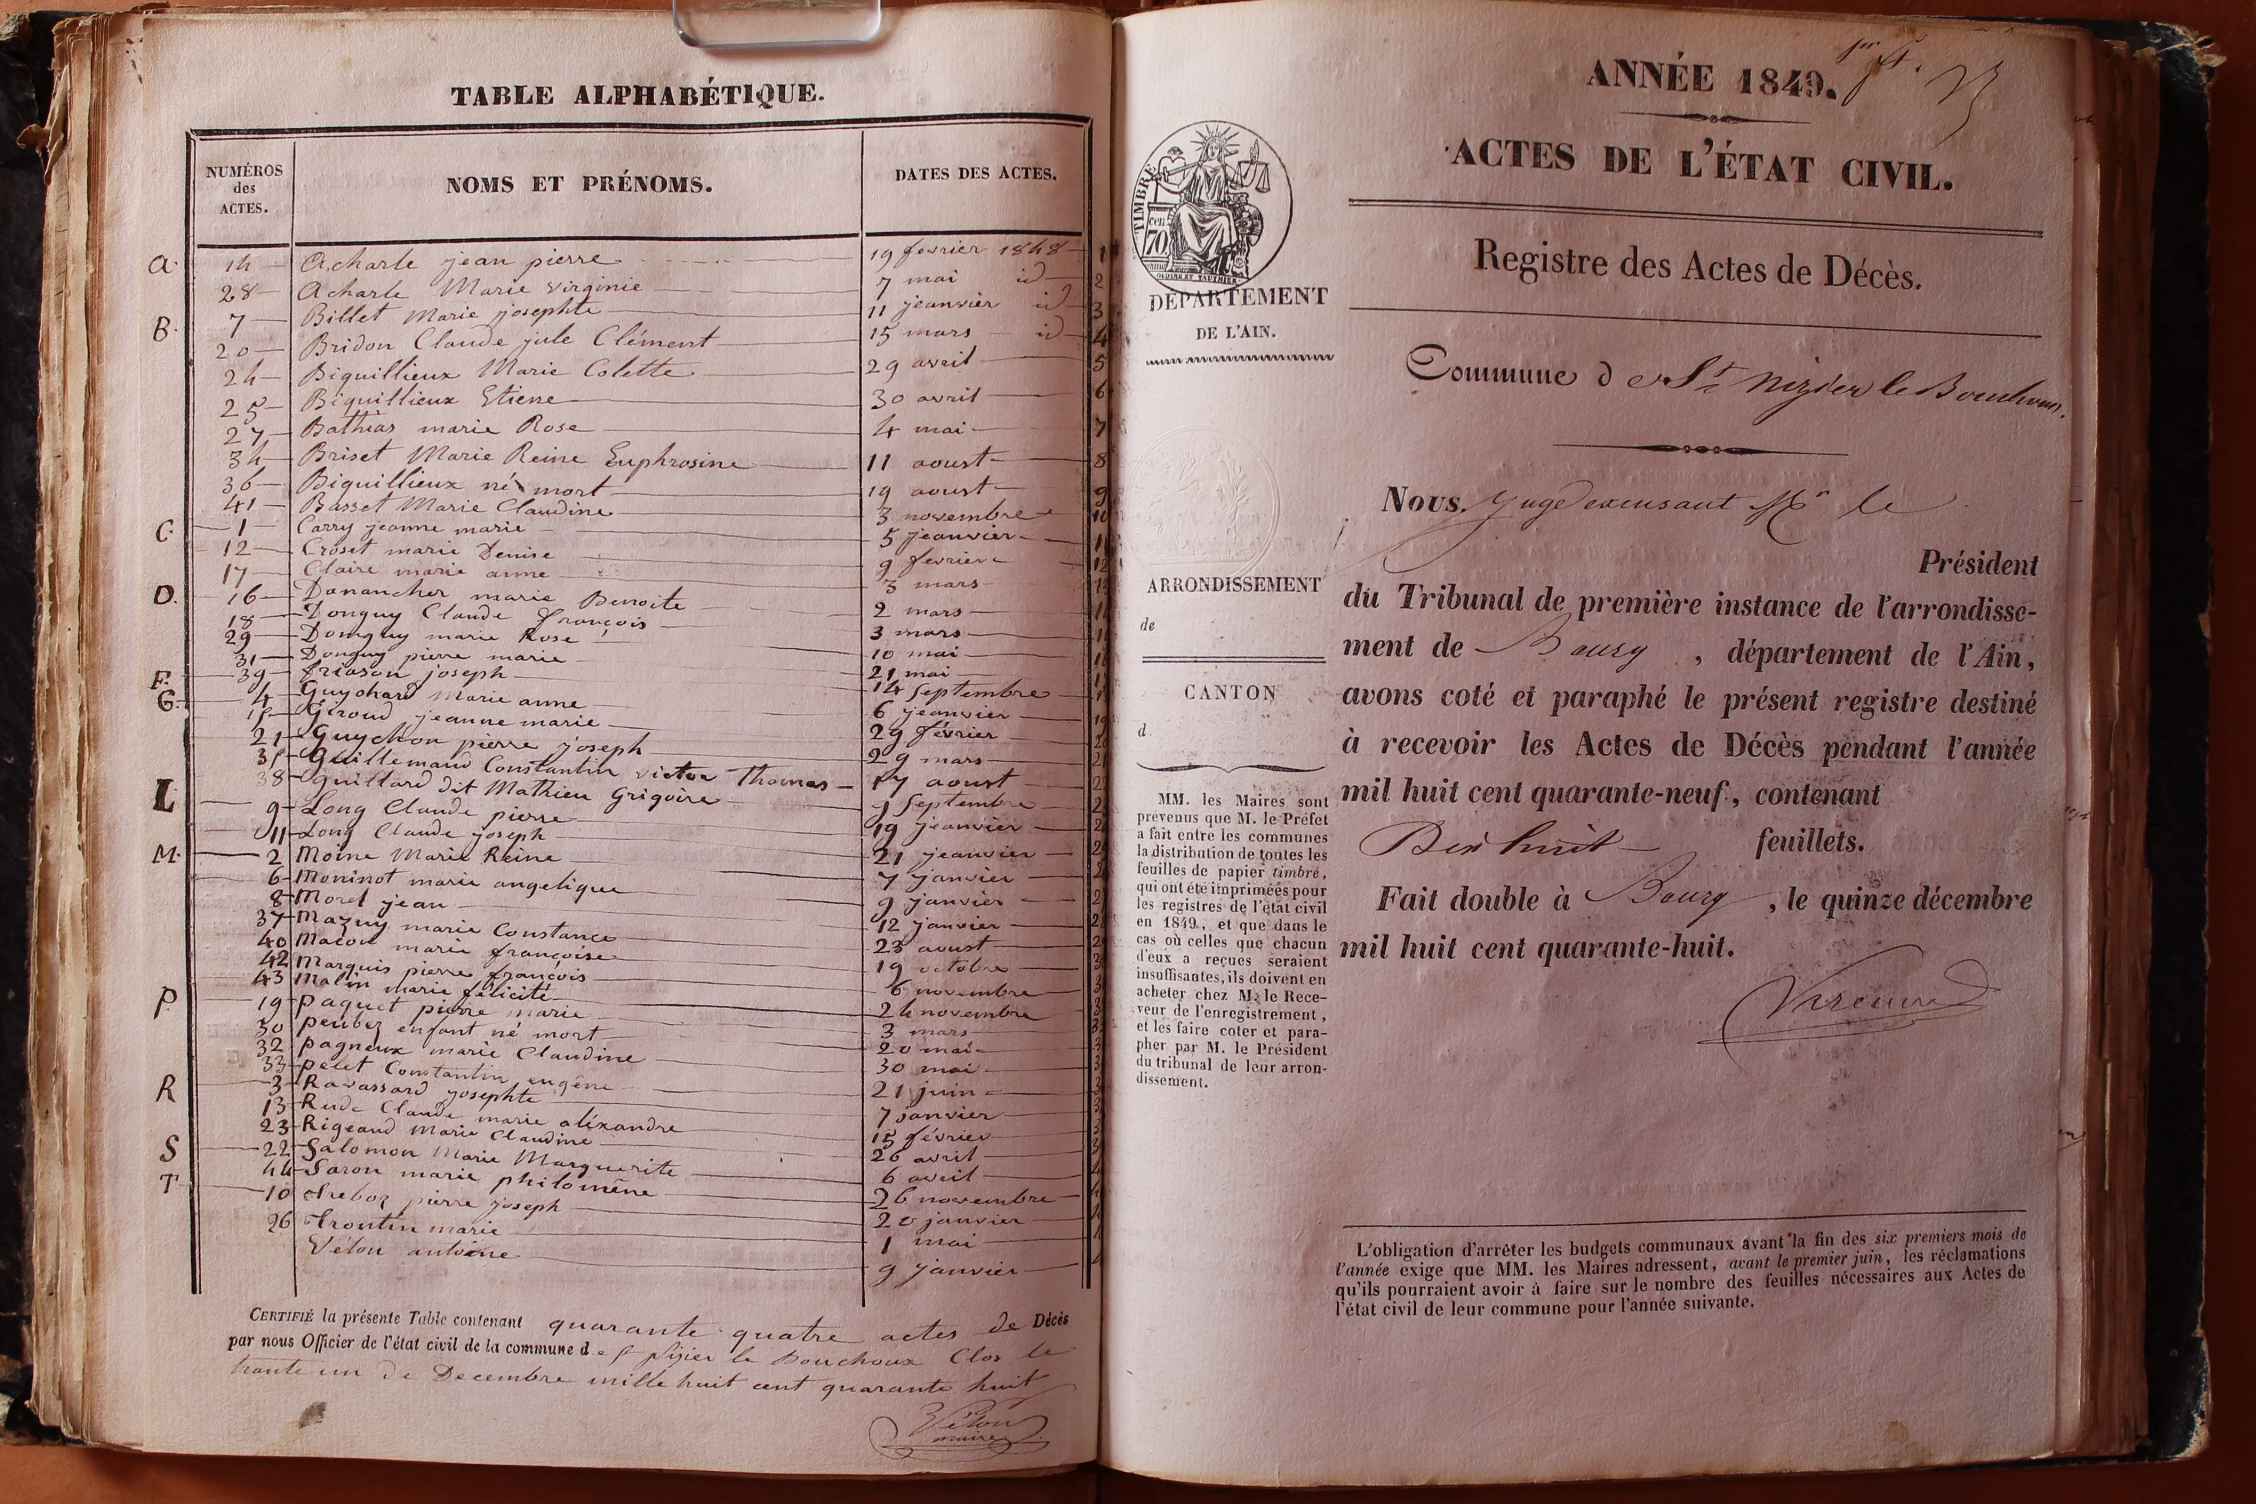 TABLE ALPHABÉTIQUE.
NUMÉROS des ACTES.
NOMS ET PRÉNOMS.
DATES DES ACTES.
A. 14 Acharle jean pierre 19 fevrier 1848 1
28 Acharle Marie Virginie 7 mai id 2
B. 7 Billet Marie josephte 11 jeanvier id 3
20 Bridon Claude jule Clément 15 mars id 4
24 Biquillieux Marie Colette 29 avril 5
25 Biquillieux Etiene 30 avril 6
27 Bathias marie Rose 4 mai 7
34 Briset Marie Reine Euphrosine 11 aoust 8
36 Biquillieux né mort 19 aoust 9
41 Basset Marie Claudine 3 novembre 10
C. 1 Carry jeanne marie 5 jeanvier
12 Croset marie Denise 9 fevrier
17 Claire marie anne 3 mars
D. 16 Danancher marie Benoite 2 mars
18 Donguy Claude françois 3 mars
29 Donguy marie Rose 10 mai
31 Donguy pierre marie 21 mai
F. 39 friason joseph 14 Septembre
G. 4 Guychard Marie anne 6 jeanvier
15 Giroud jeanne marie 29 février
21 Guychon pierre joseph 29 mars
35 Guillemaud Constantin victor Thomas 17 aoust
38 guillard dit Mathieu Grigoire Septembre
L 9 Long Claude pierre 19 jeanvier
11 Long Claude joseph 21 jeanvier
M. 2 Moine Marie Reine 7 janvier
6 Moninot marie angelique 9 janvier
8 Morel jean 12 janvier
37 Mazuy marie Constance 23 aoust
40 Macon marie françoise 19 octobre
42 Marquis pierre françois 6 novembre
43 Malin marie félicité 24 novembre
P. 19 paquet pierre marie 3 mars
30 peubez enfant né mort 20 mai
32 pagneux marie Claudine 30 mai
33 pelet Constantin eugêne 21 juin
R 3 Ravassard josephte 7 janvier
13 Rude Claude marie aléxandre 15 février
23 Rigeaud Marie Claudine 26 avril
S 22 Salomon Marie Marguerite 6 avril
44 Saron marie philomêne 26 novembre
T 10 Treboz pierre joseph 20 janvier
26 Trontin marie 1 mai
Vélon antoine 9 janvier
CERTIFIÉ la présente Table contenant quarante quatre actes de Décès
par nous Officier de l'état civil de la commune de St Nizier le Bouchoux Clos le
trante un de Decembre mille huit cent quarante huit
Vélon
maire
ANNÉE 1849.
ACTES DE L'ÉTAT CIVIL.
Registre des Actes de Décès.
TIMBRE
cen
70
DÉPARTEMENT
DE L'AIN.
Commune de St Nizier le Bouchoux.
Nous, juge excusant Mr le
Président
du Tribunal de première instance de l'arrondisse-
ment de Bourg, département de l'Ain,
avons coté et paraphé le présent registre destiné
à recevoir les Actes de Décès pendant l'année
mil huit cent quarante-neuf, contenant
Dix huit feuillets.
Fait double à Bourg, le quinze décembre
mil huit cent quarante-huit.
ARRONDISSEMENT
de
CANTON
d
MM. les Maires sont
prévenus que M. le Préfet
a fait entre les communes
la distribution de toutes les
feuilles de papier timbré,
qui ont été imprimées pour
les registres de l'état civil
en 1849, et que dans le
cas où celles que chacun
d'eux a reçues seraient
insuffisantes, ils doivent en
acheter chez M. le Rece-
veur de l'enregistrement,
et les faire coter et para-
pher par M. le Président
du tribunal de leur arron-
dissement.
L'obligation d'arrêter les budgets communaux avant la fin des six premiers mois de
l'année exige que MM. les Maires adressent, avant le premier juin, les réclamations
qu'ils pourraient avoir à faire sur le nombre des feuilles nécessaires aux Actes de
l'état civil de leur commune pour l'année suivante.